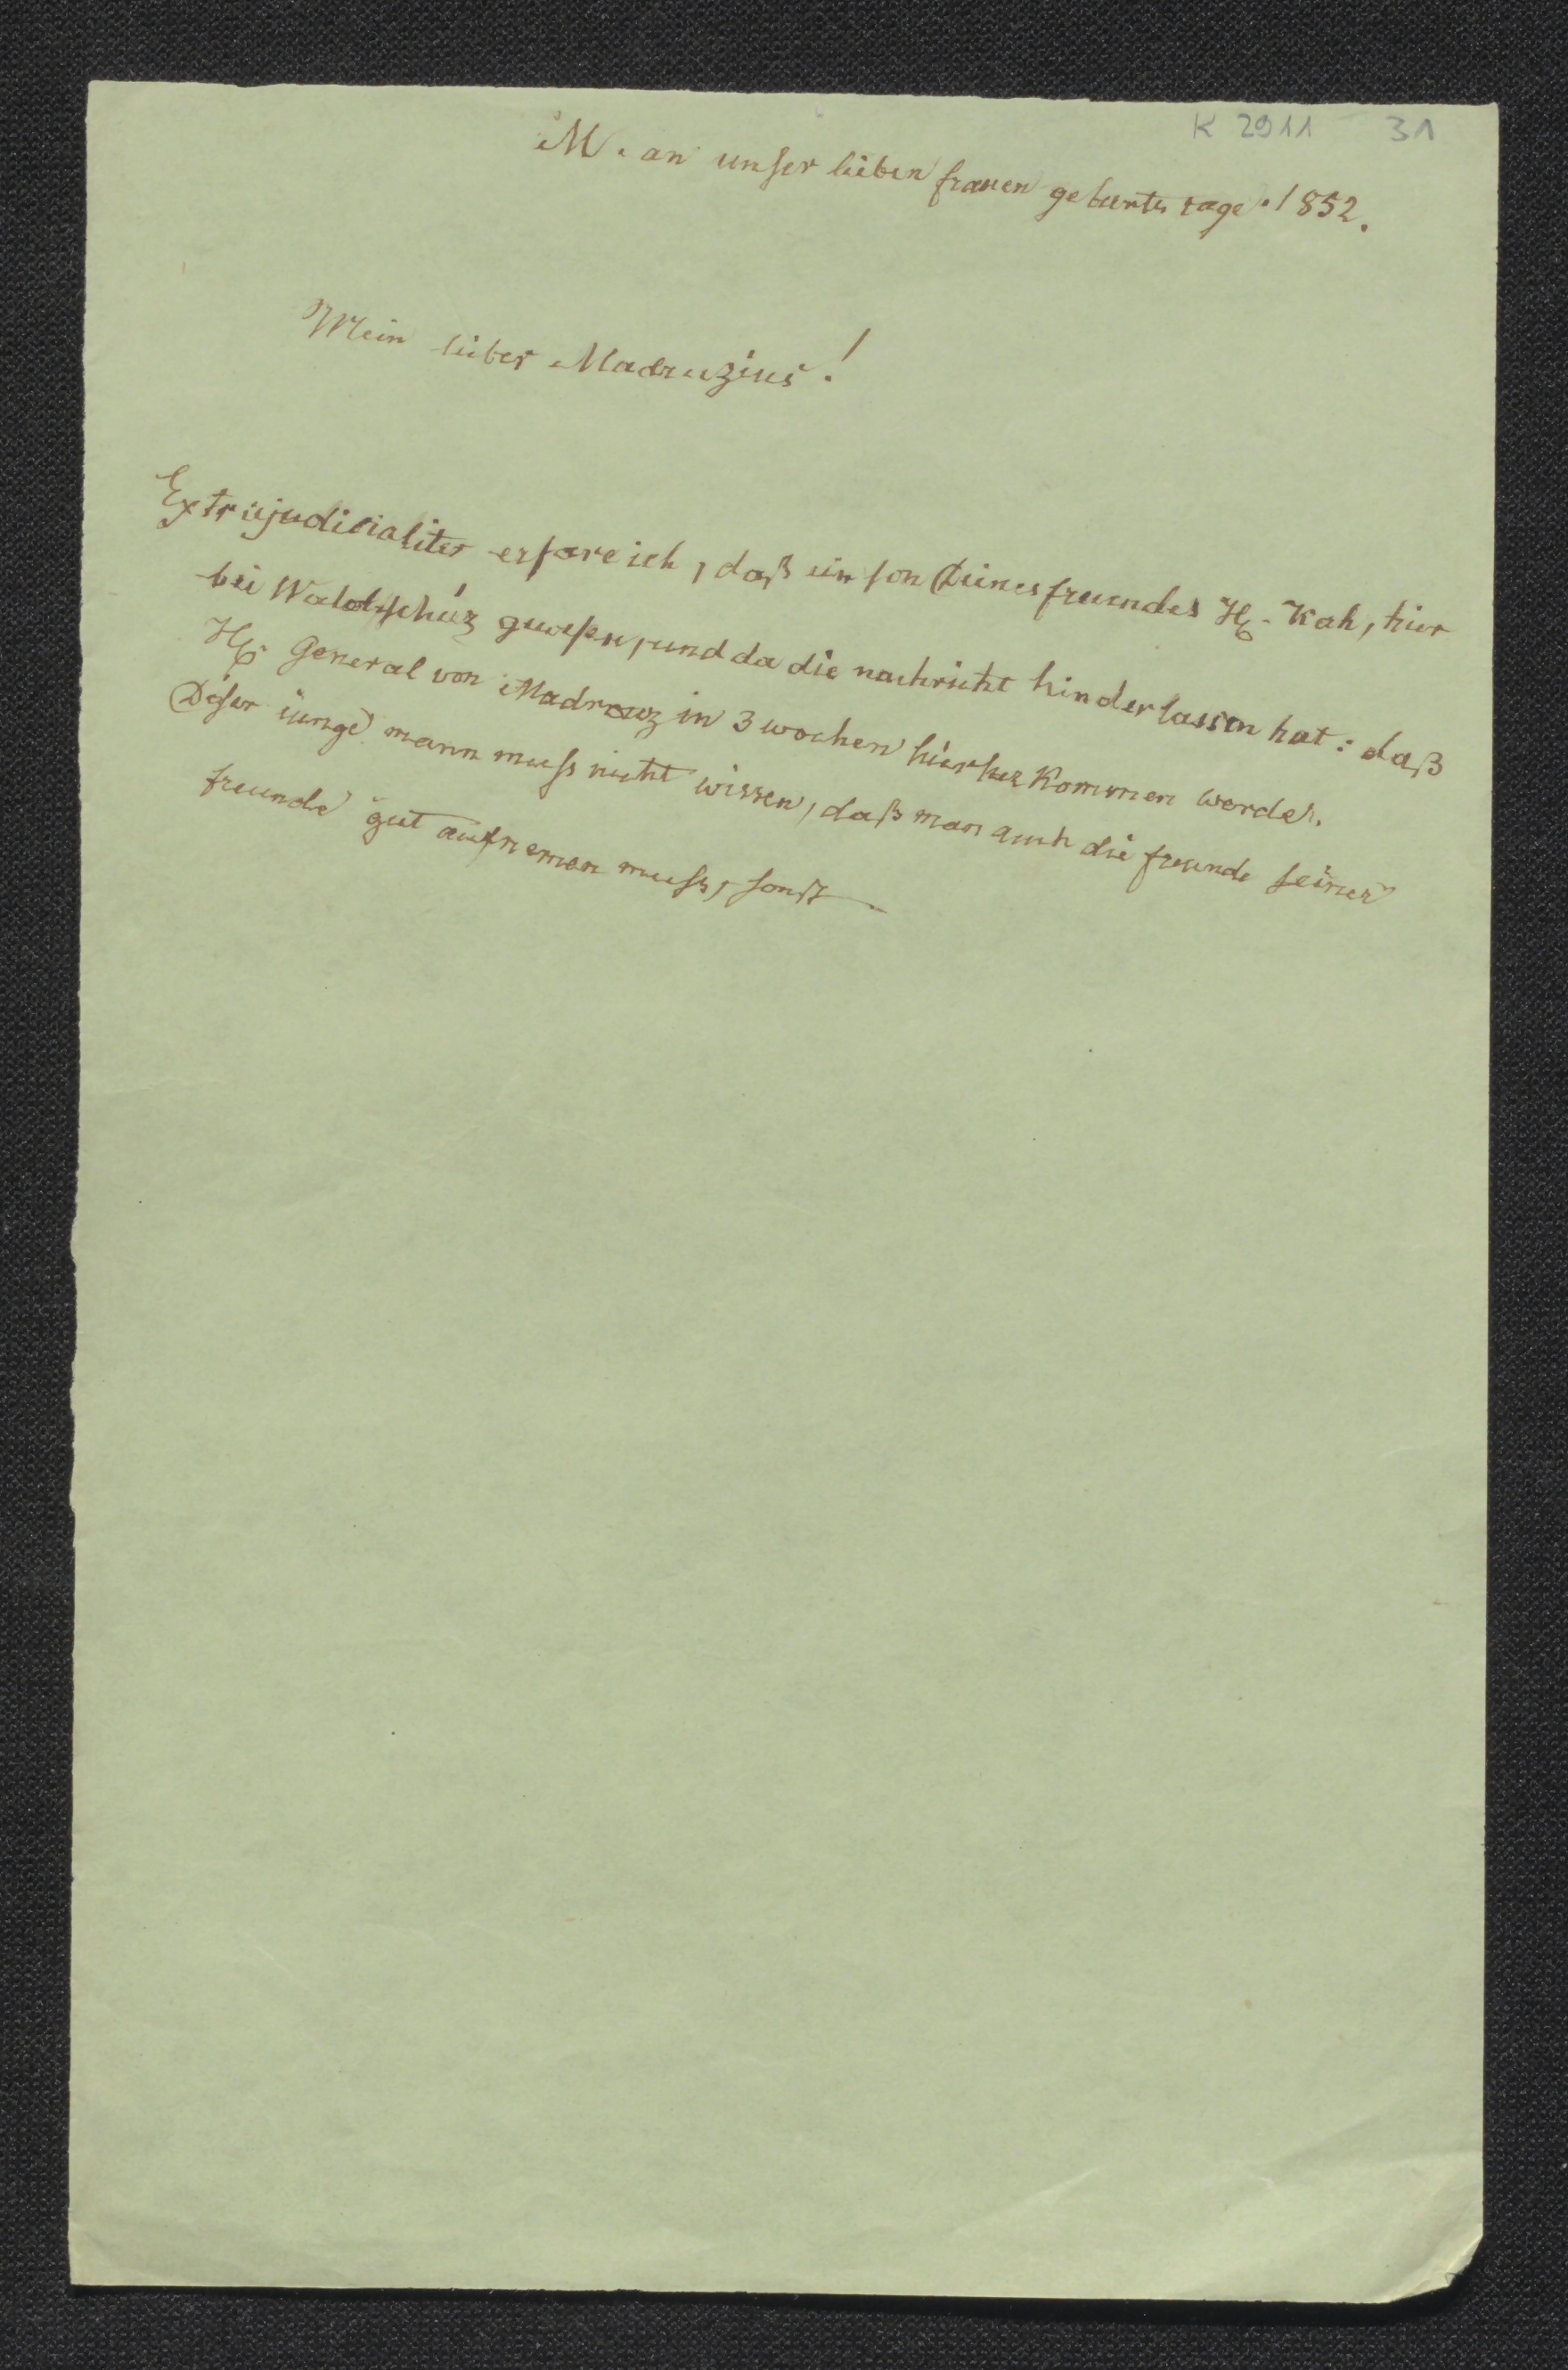 K 2911 31
M. an unser lieben frauen geburts tage. 1852.
Mein lieber Madruzius!
Extrajudicialiter erfare ich, daß ein son Deines freundes H. Kah, hier
bei Waldschüz gewesen, und da die nachricht hinderlassen hat: daß
H. General von Madrouz in 3 wochen hierher kommen werde.
Diser iunge mann muss nicht wissen, daß man auch die freunde seiner
freunde gut aufnemen muss, sonst